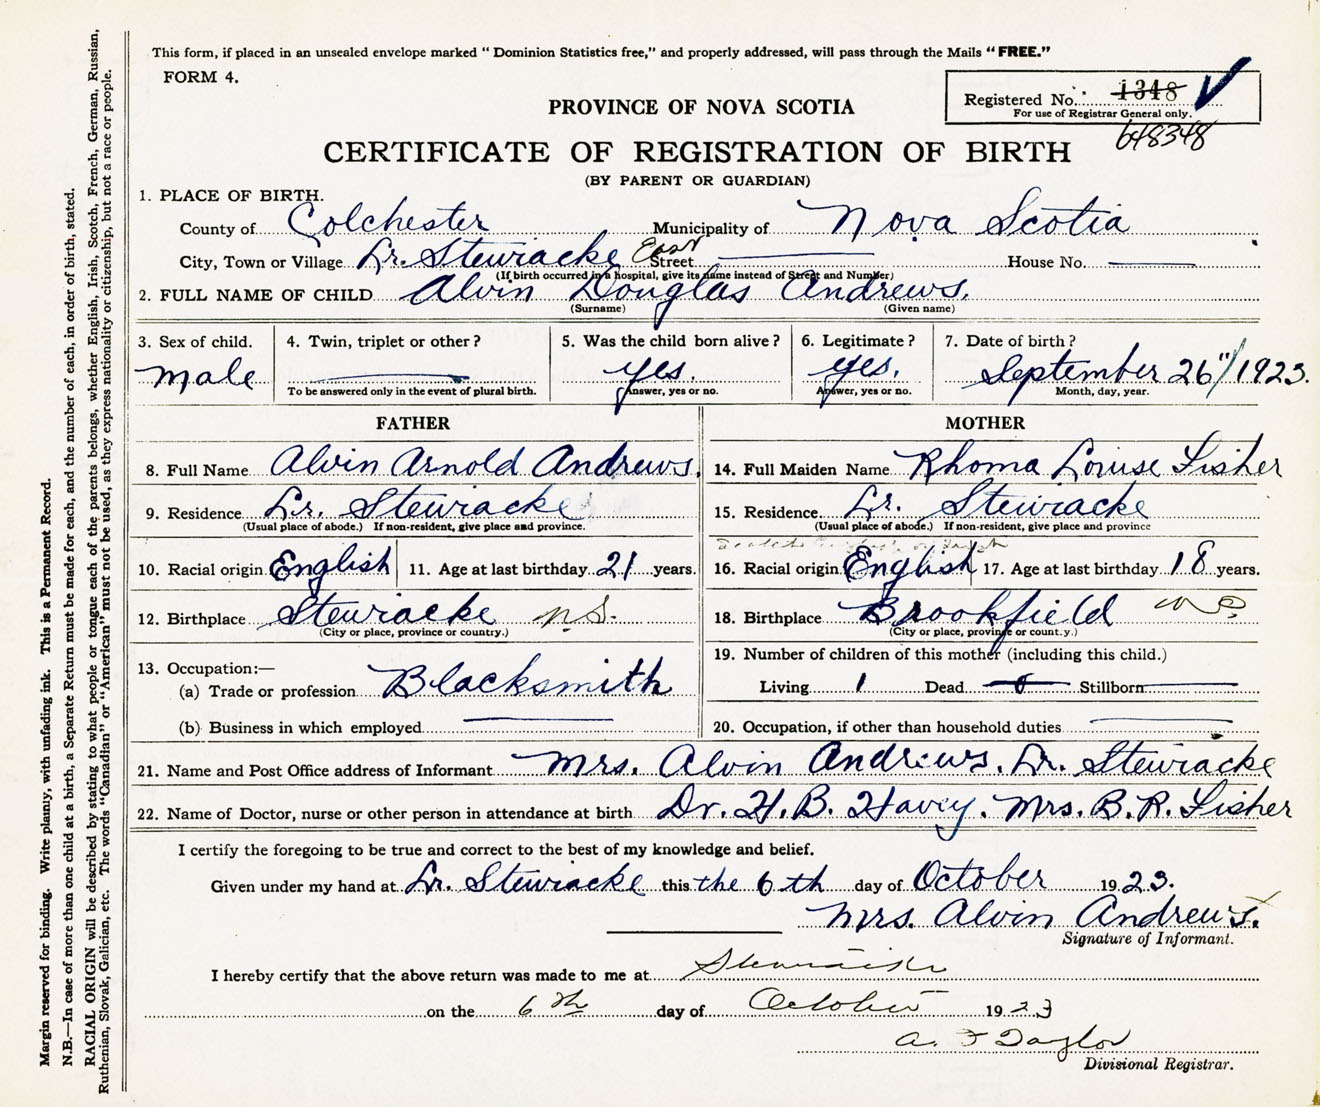 This form, if placed in an unsealed envelope marked "Dominion Statistics free," and properly addressed, will pass through the Mails "FREE."
FORM 4.
Registered No. 1348
For use of Registrar General only.
648348
PROVINCE OF NOVA SCOTIA
CERTIFICATE OF REGISTRATION OF BIRTH
(BY PARENT OR GUARDIAN)
1. PLACE OF BIRTH.
County of Colchester Municipality of Nova Scotia
City, Town or Village Lr. Stewiacke East Street House No.
(If birth occurred in a hospital, give its name instead of Street and Number)
2. FULL NAME OF CHILD Alvin Douglas Andrews.
(Surname) (Given name)
3. Sex of child. 4. Twin, triplet or other? 5. Was the child born alive? 6. Legitimate? 7. Date of birth?
male yes. yes. September 26"/1923.
To be answered only in the event of plural birth. Answer, yes or no. Answer, yes or no. Month, day, year.
FATHER MOTHER
8. Full Name Alvin Arnold Andrews. 14. Full Maiden Name Rhoma Louise Fisher
9. Residence Lr. Stewiacke 15. Residence. Lr. Stewiacke
(Usual place of abode.) If non-resident, give place and province. (Usual place of abode.) If non-resident, give place and province
10. Racial origin English 11. Age at last birthday 21 years. 16. Racial origin English 17. Age at last birthday 18 years.
12. Birthplace Stewiacke N.S. 18. Birthplace Brookfield NS
(City or place, province or country.) (City or place, province or count.y.)
13. Occupation:— 19. Number of children of this mother (including this child.)
(a) Trade or profession Blacksmith Living 1 Dead 0 Stillborn
(b) Business in which employed 20. Occupation, if other than household duties
21. Name and Post Office address of Informant Mrs. Alvin Andrews. Lr. Stewiacke
22. Name of Doctor, nurse or other person in attendance at birth Dr. H. B. Havey. Mrs. B. R. Fisher
I certify the foregoing to be true and correct to the best of my knowledge and belief.
Given under my hand at Lr. Stewiacke this the 6th day of October 1923.
Mrs. Alvin Andrews.
Signature of Informant.
I hereby certify that the above return was made to me at Stewiacke
on the 6th day of October 1923
A. F Taylor
Divisional Registrar.
Margin reserved for binding. Write plainly, with unfading ink. This is a Permanent Record.
N.B.—In case of more than one child at a birth, a Separate Return must be made for each, and the number of each, in order of birth, stated.
RACIAL ORIGIN will be described by stating to what people or tongue each of the parents belongs, whether English, Irish, Scotch, French, German, Russian,
Ruthenian, Slovak, Galician, etc. The words "Canadian" or "American" must not be used, as they express nationality or citizenship, but not a race or people.